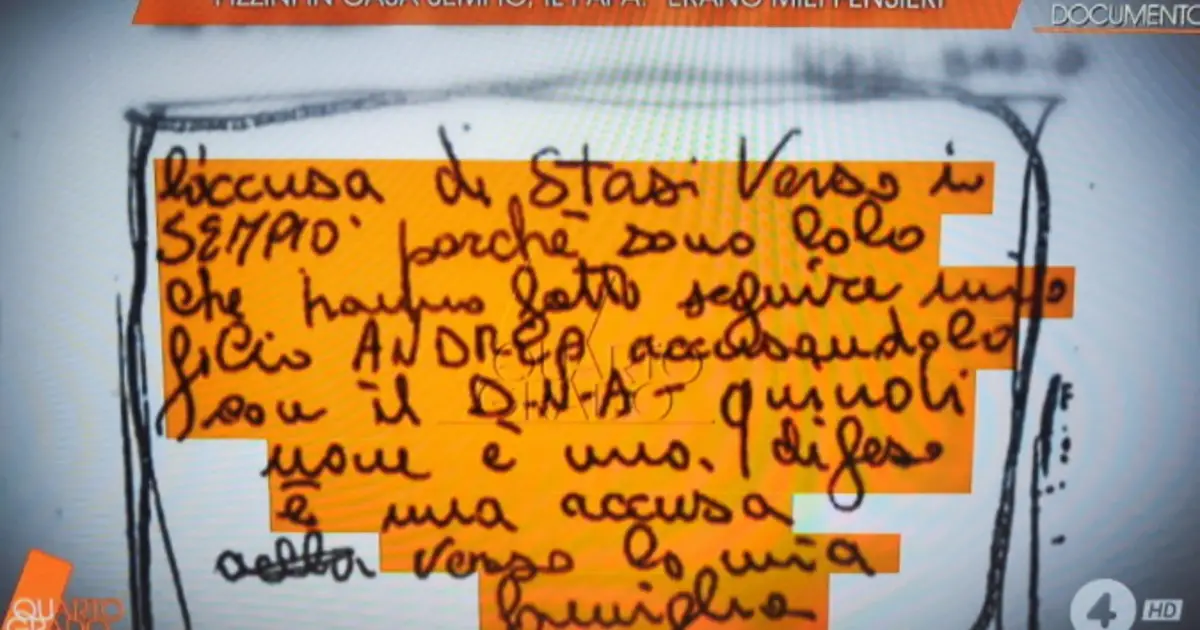 PIZZINI IN CASA SEMPIO, IL PAPÀ: "ERANO MIEI PENSIERI"
DOCUMENTO
l'accusa di Stasi Verso in
SEMPIO perchè sono loro
che hanno fatto seguire mio
ficio ANDREA accusandolo
con il D.N.A- quindi
non è una difesa
è una accusa
verso la mia
famiglia
QUARTO
GRADO
QUARTO
GRADO
4 HD